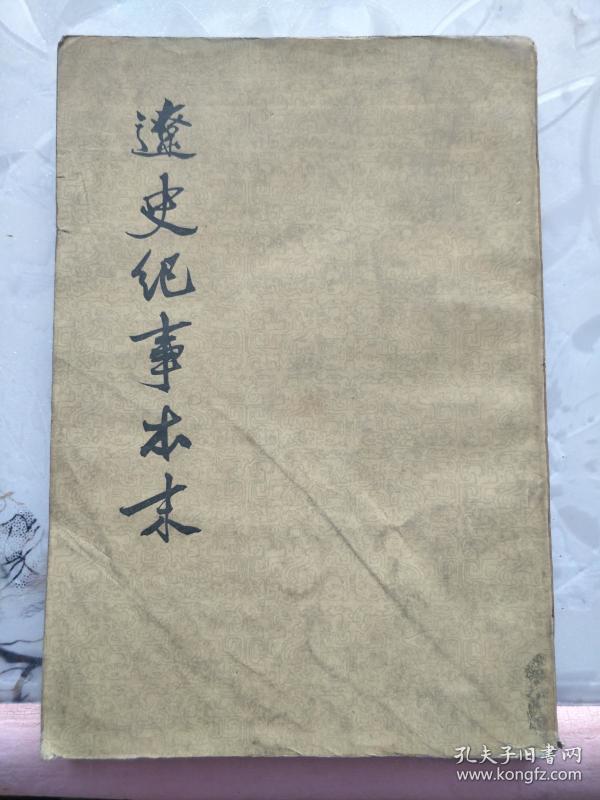 遼史纪事本末
孔夫子旧書网
www.kongfz.com